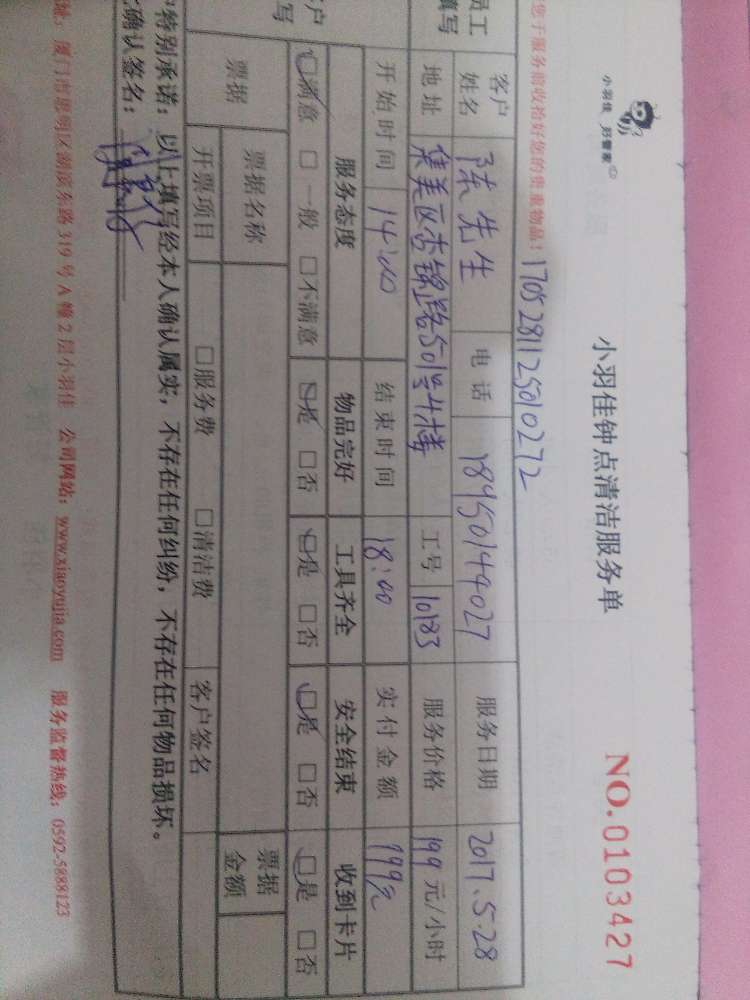 小羽佳 好管家
小羽佳钟点清洁服务单
NO.0103427
您于服务前收拾好您的贵重物品! 1705281125010272
员工填写
客户姓名 陈先生 电话 18950149027 服务日期 2017.5.28
地址 集美区杏锦路501号4楼 工号 10183 服务价格 199 元/小时
开始时间 14:00 结束时间 18:00 实付金额 199元
客户 写
服务态度 物品完好 工具齐全 安全结束 收到卡片
☑满意 □一般 □不满意 ☑是 □否 ☑是 □否 ☑是 □否 ☑是 □否
票据 票据名称 票据金额
开票项目 □服务费 □清洁费 客户签名
特别承诺:以上填写经本人确认属实,不存在任何纠纷,不存在任何物品损坏。
确认签名:
址:厦门市思明区湖滨东路319号A幢2层小羽佳 公司网站:www.xiaoyujia.com 服务监督热线:0592-5888123